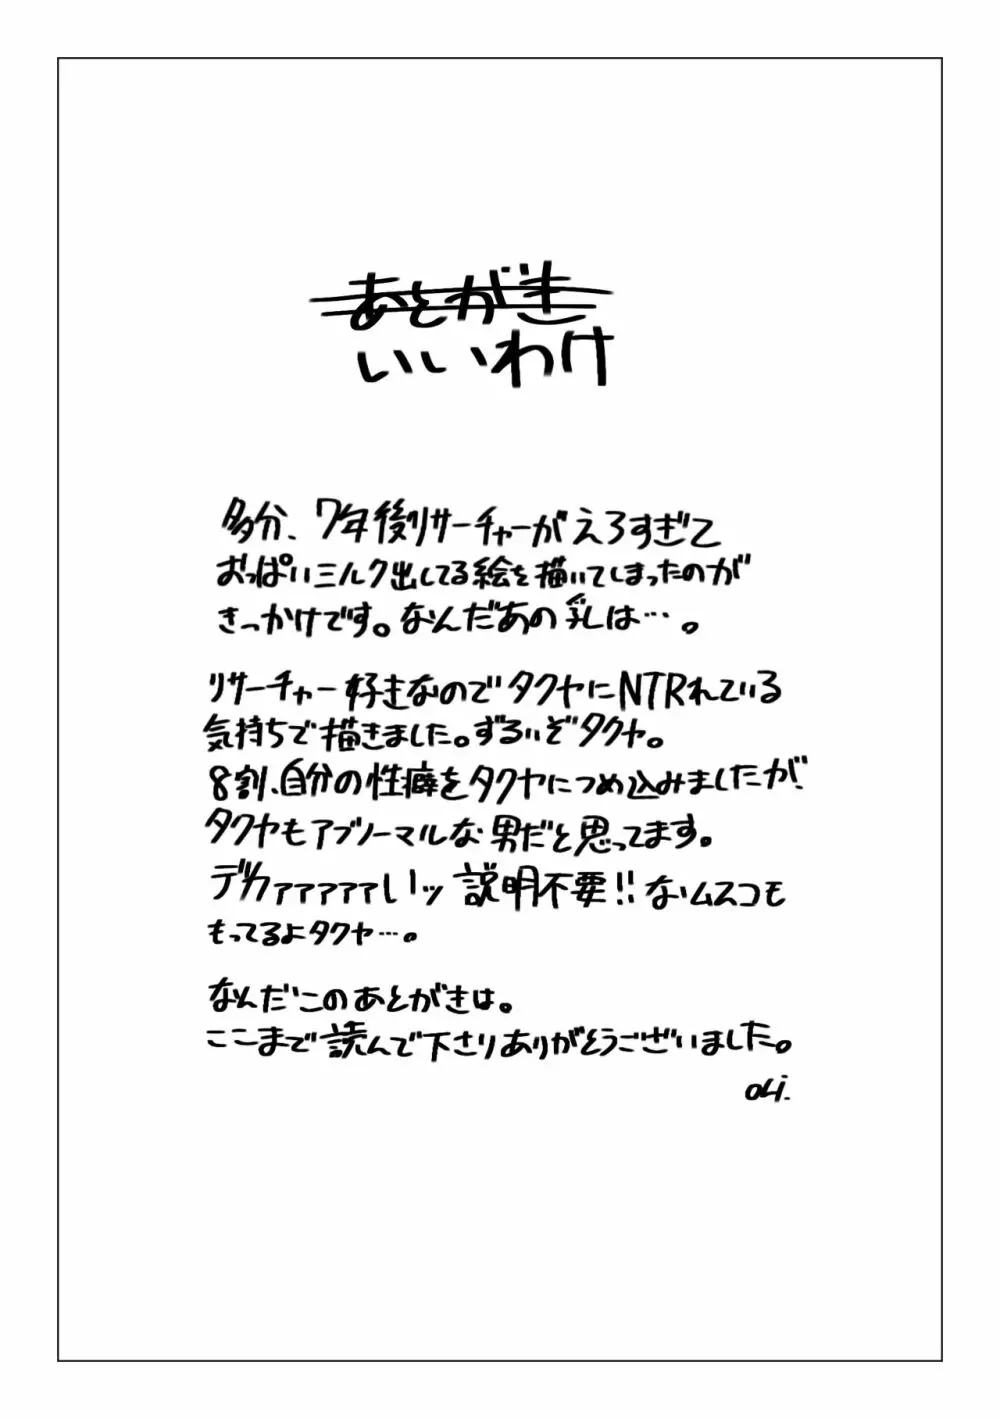 あとがき
いいわけ
多分、7年後リサーチャーがえろすぎて
おっぱいミルク出してる絵を描いてしまったのが
きっかけです。なんだあの乳は…。
リサーチャー好きなのでタクヤにNTRれている
気持ちで描きました。ずるいぞタクヤ。
8割、自分の性癖をタクヤにつめ込みましたが、
タクヤもアブノーマルな男だと思ってます。
デカァァァァァいッ説明不要!!なムスコも
もってるよタクヤ…。
なんだこのあとがきは。
ここまで読んで下さりありがとうございました。